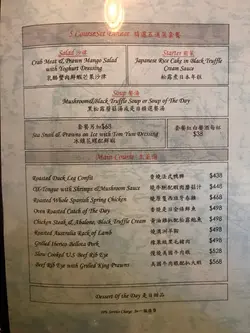 5 Course Set Dinner 精選五道菜套餐
Salad 沙律
Crab Meat & Prawn Mango Salad
with Yoghurt Dressing
乳酪蟹肉鮮蝦芒果沙律
Starter 前菜
Japanese Rice Cake in Black Truffle
Cream Sauce
松露煮日本年糕
Soup 餐湯
Mushroom & Black Truffle Soup or Soup of The Day
黑松露蘑菇湯或是日精選餐湯
套餐另加$68
Sea Snail & Prawns on Ice with Tom Yum Dressing
套餐紅白餐酒每杯
$38
Main Course 主菜類
Roasted Duck Leg Confit
$438
Ox-Tongue with Shrimps & Mushroom Sauce
$448
Roasted Whole Spanish Spring Chicken
$468
Oven Roasted Catch of The Day
$468
Chicken Steak & Abalone, Black Truffle Cream
$468
Roasted Australia Rack of Lamb
燒澳洲羊鞍
$498
Grilled Iberico Bellota Pork
$498
Slow Cooked U.S Beef Rib Eye
$498
Beef Rib Eye with Grilled King Prawns
$568
Dessert Of the Day 是日甜品
10% Service Charge 加一服務費